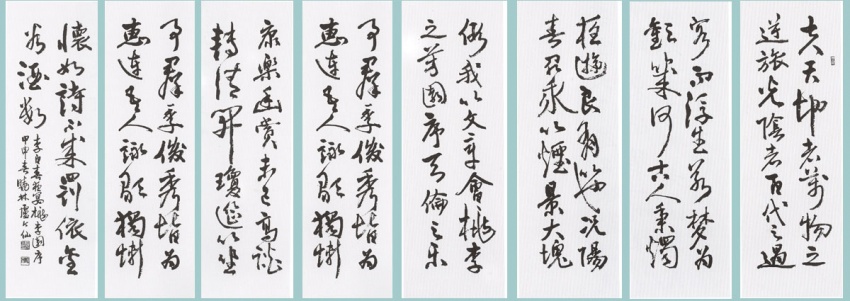 夫天地者萬物之
逆旅光陰者百代之過
客而浮生若夢為
歡幾何古人秉燭
夜遊良有以也況陽
春召我以煙景大塊
假我以文章會桃李
之芳園序天倫之乐
事羣季俊秀皆為
惠連吾人詠歌獨慚
康樂幽賞未已高談
轉清開瓊筵以坐
事羣季俊秀皆為
惠連吾人詠歌獨慚
懷如詩不成罰依金
谷酒數
李白春夜宴桃李園序
甲申春